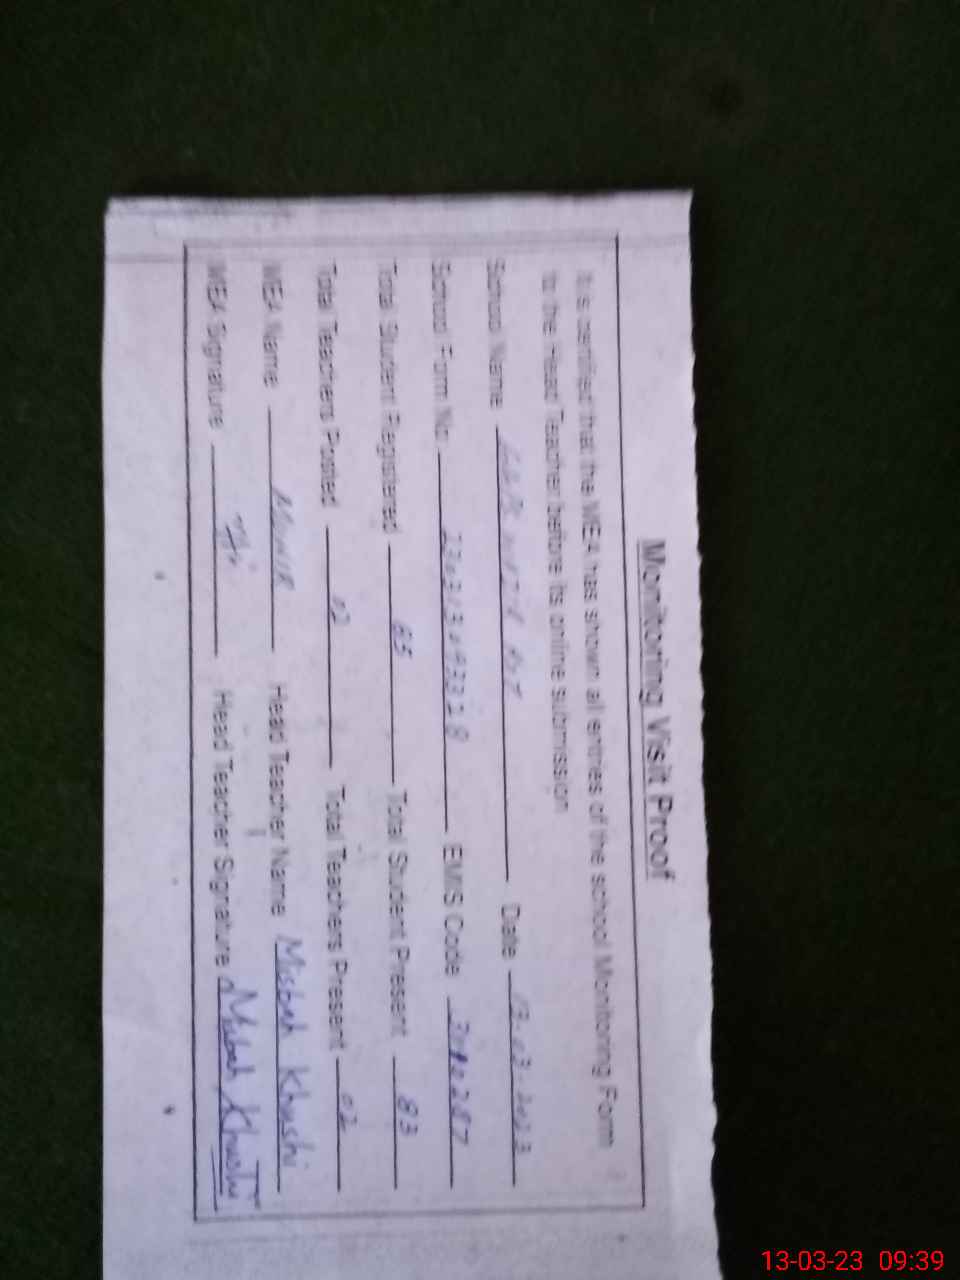 Monitoring Visit Proof
It is certified that the MEA has shown all entries of the school Monitoring Form
to the Head Teacher before its online submission
School Name Date 13-03-2023
School Form No. EMIS Code
Total Student Registered Total Student Present 83
Total Teachers Posted 02 Total Teachers Present 02
MEA Name Head Teacher Name Misbah Khushi
MEA Signature Head Teacher Signature Misbah Khushi
13-03-23 09:39